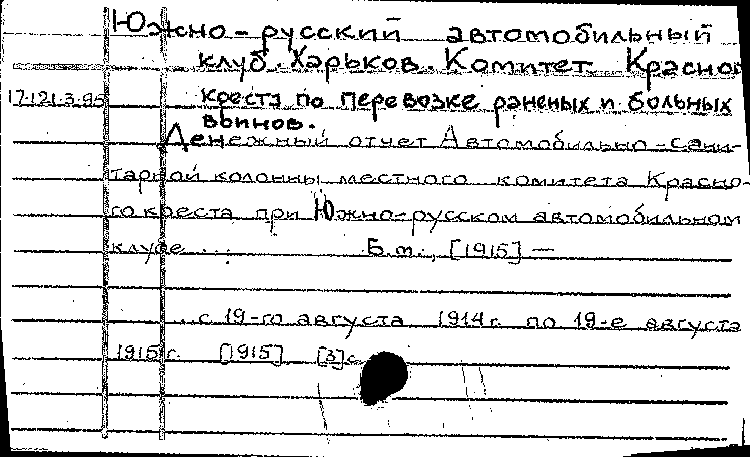 Южно-русский автомобильный
клуб. Харьков. Комитет Красного
17.121.3.95 креста по перевозке раненых и больных
воинов.
Денежный отчет Автомобильно-сани-
тарной колонны местного комитета Красно-
го креста при Южно-русском автомобильном
клубе ... Б.м., [1915] —
...с 19-го августа 1914 г. по 19-е августа
1915 г. [1915] [3] с.